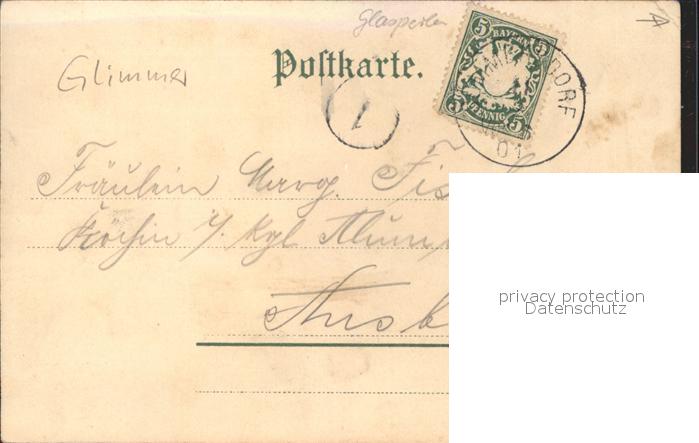 Glasperlen
Glimmer
Postkarte.
5 BAYERN 5
5 PFENNIG 5
DORF
01
1
Fräulein Marg. Fis
Köchin i/ Kgl Alum
Ansb
privacy protection
Datenschutz